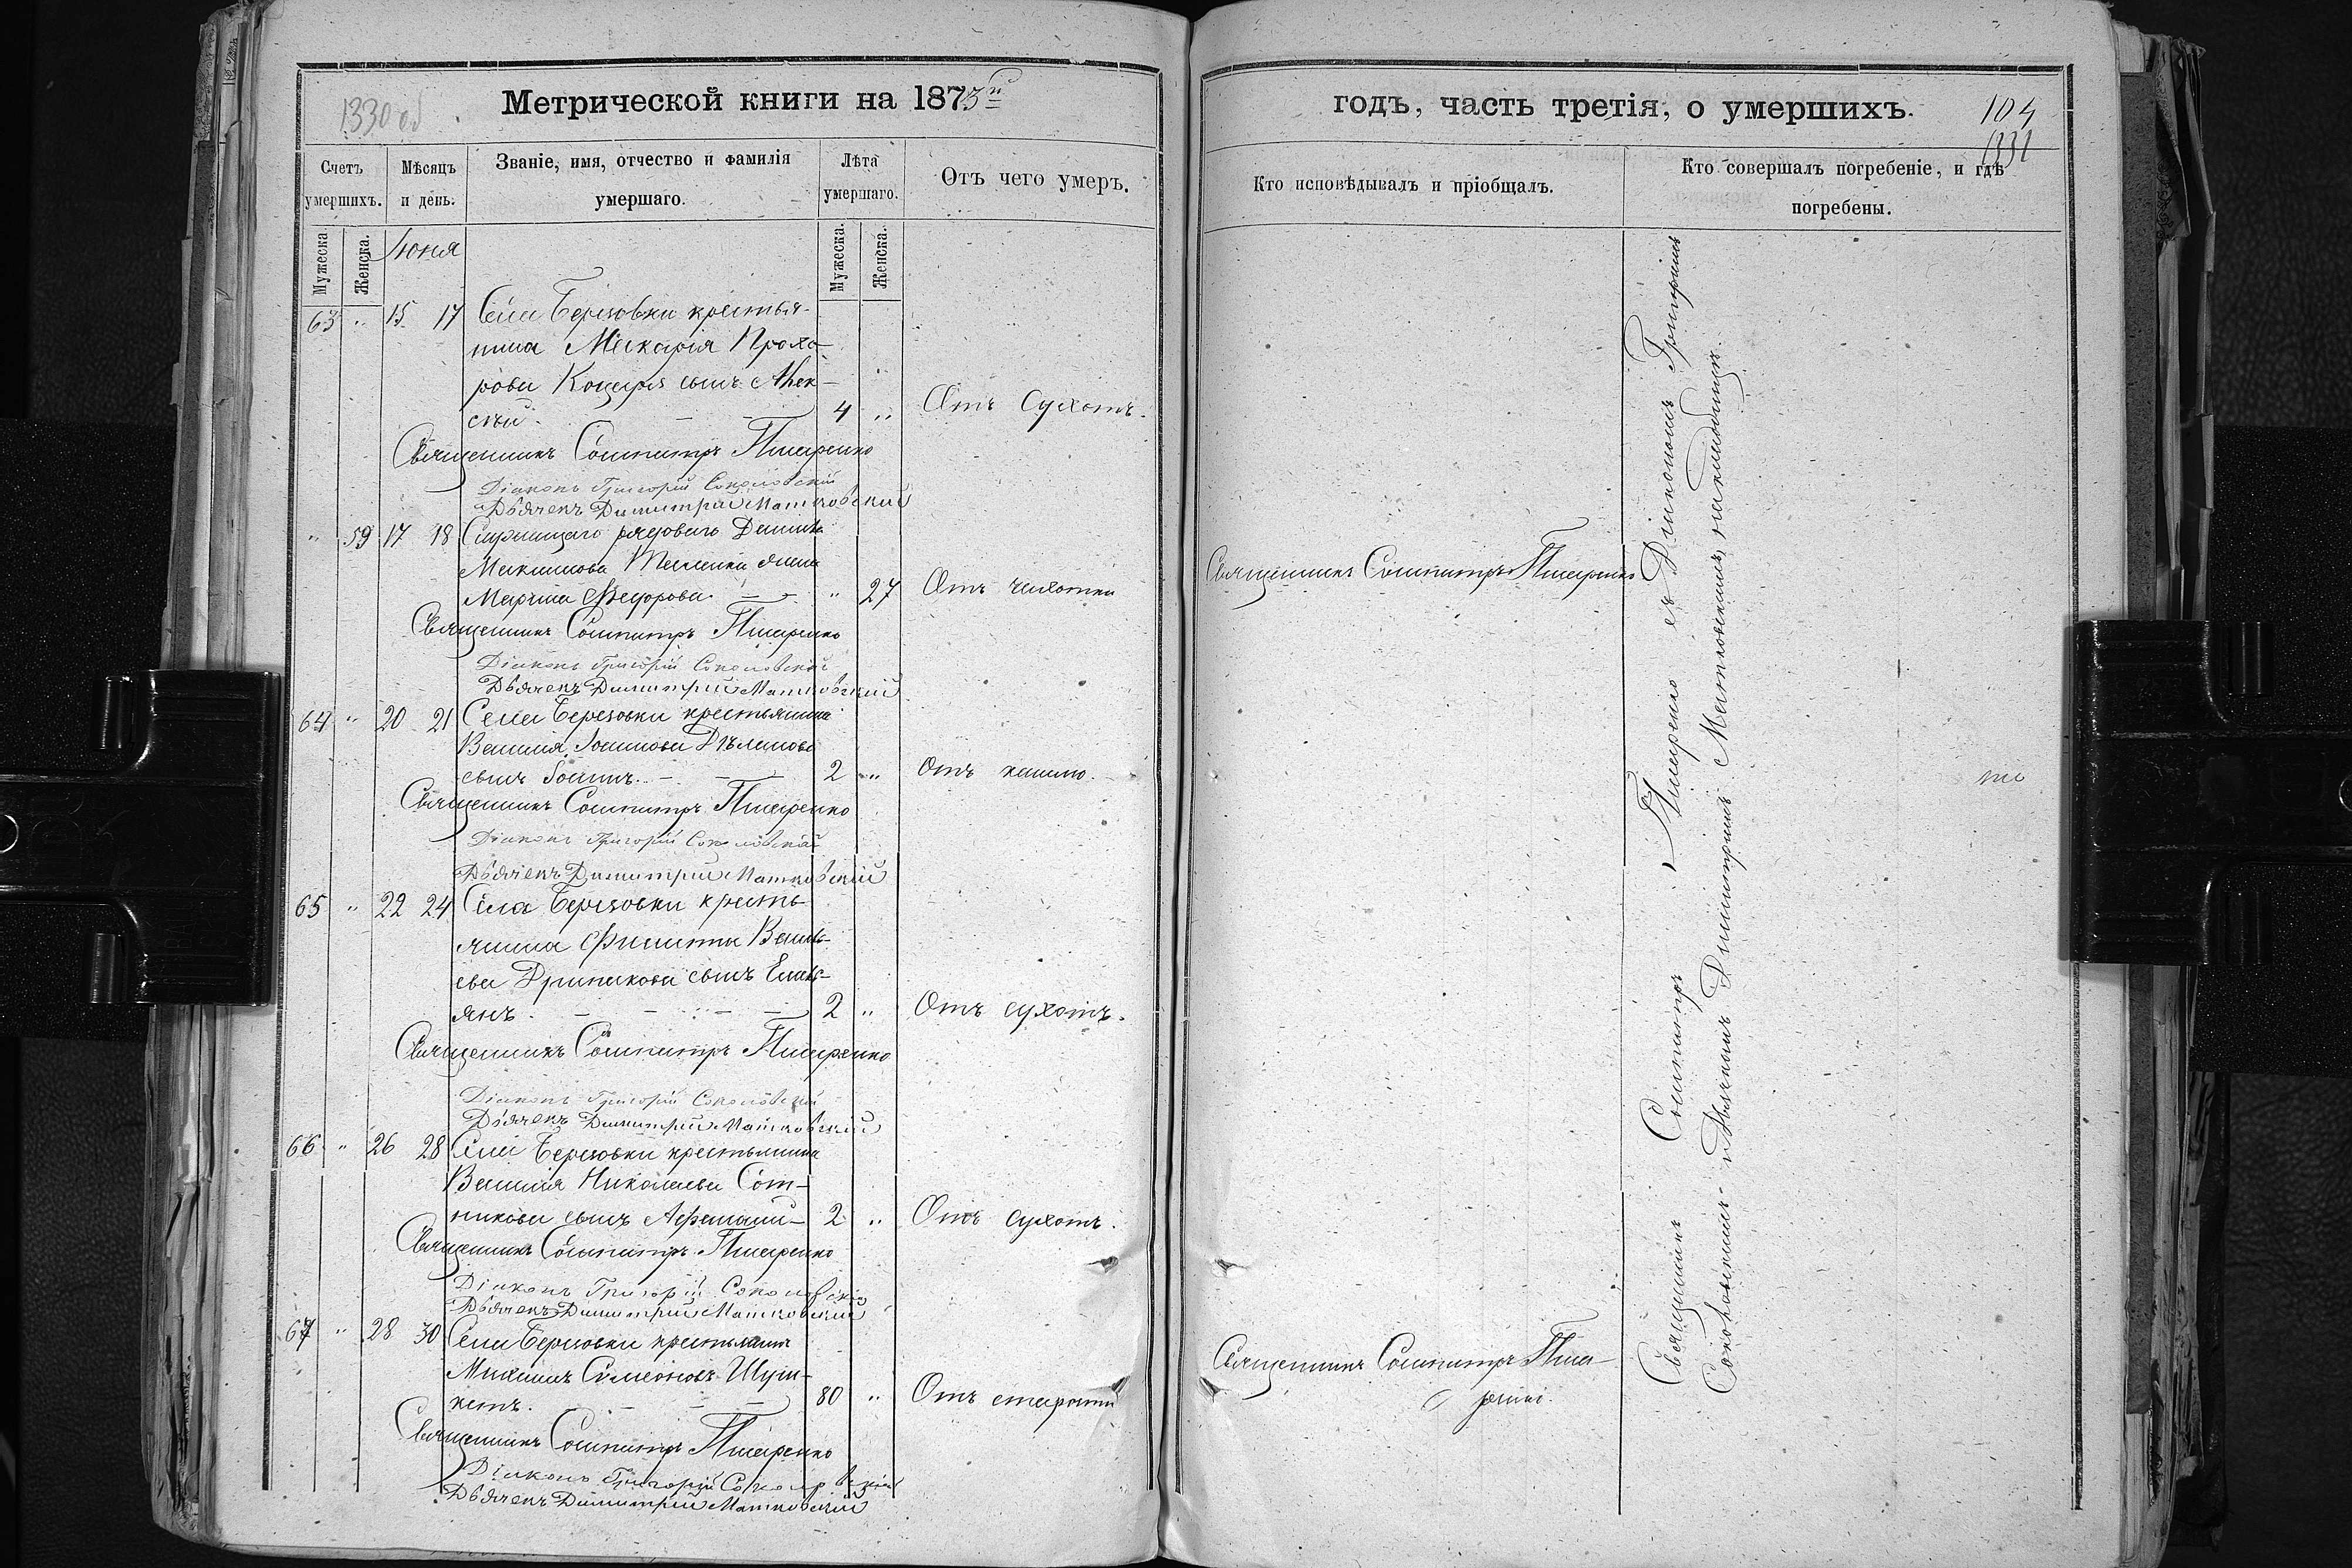 1330 об
Метрической книги на 1873й
Счетъ умершихъ.
Мѣсяцъ и день.
Званіе, имя, отчество и фамилія умершаго.
Лѣта умершаго.
Отъ чего умеръ.
Мужеска
Женска.
Мужеска.
Женска.
Іюня
63 " 15 17 Села Березовки крестья-
нина Макарія Прохо-
рова Коцаря сынъ Алек-
сѣй. 4 " Отъ сухотъ.
Священникъ Сосипатръ Писаренко
Діаконъ Григорій Соколовскій
Дьячекъ Димитрій Матковскій
" 59 17 18 рядоваго
Максимова жена
Марѳа Ѳедорова. " 27 Отъ чахотки
Священникъ Сосипатръ Писаренко
Діаконъ Григорій Соколовскій
Дьячекъ Димитрій Матковскій
64 " 20 21 Села Березовки крестьянина
Василія Іоаннова
сынъ Іоаннъ. 2 " Отъ кашлю.
Священникъ Сосипатръ Писаренко
Діаконъ Григорій Соколовскій
Дьячекъ Димитрій Матковскій
65 " 22 24 Села Березовки кресть-
янина Филиппа Василь-
ева сынъ Емель-
янъ. 2 " Отъ сухотъ.
Священникъ Сосипатръ Писаренко
Діаконъ Григорій Соколовскій
Дьячекъ Димитрій Матковскій
66 " 26 28 Села Березовки крестьянина
Василія Николаева Сот-
никова сынъ Аѳанасій 2 " Отъ сухотъ.
Священникъ Сосипатръ Писаренко
Діаконъ Григорій Соколовскій
Дьячекъ Димитрій Матковскій
67 " 28 30 Села Березовки крестьянинъ
Симеоновъ
80 " Отъ старости
Священникъ Сосипатръ Писаренко
Діаконъ Григорій Соколовскій
Дьячекъ Димитрій Матковскій
годъ, часть третія, о умершихъ.
104
1331
Кто исповѣдывалъ и пріобщалъ.
Кто совершалъ погребеніе, и гдѣ погребены.
Священникъ Сосипатръ Писаренко
Священникъ Сосипатръ Писа-
ренко.
Священникъ Сосипатръ Писаренко съ Діакономъ Григоріемъ
Соколовскимъ и Дьячкомъ Димитріемъ Матковскимъ на кладбищѣ.